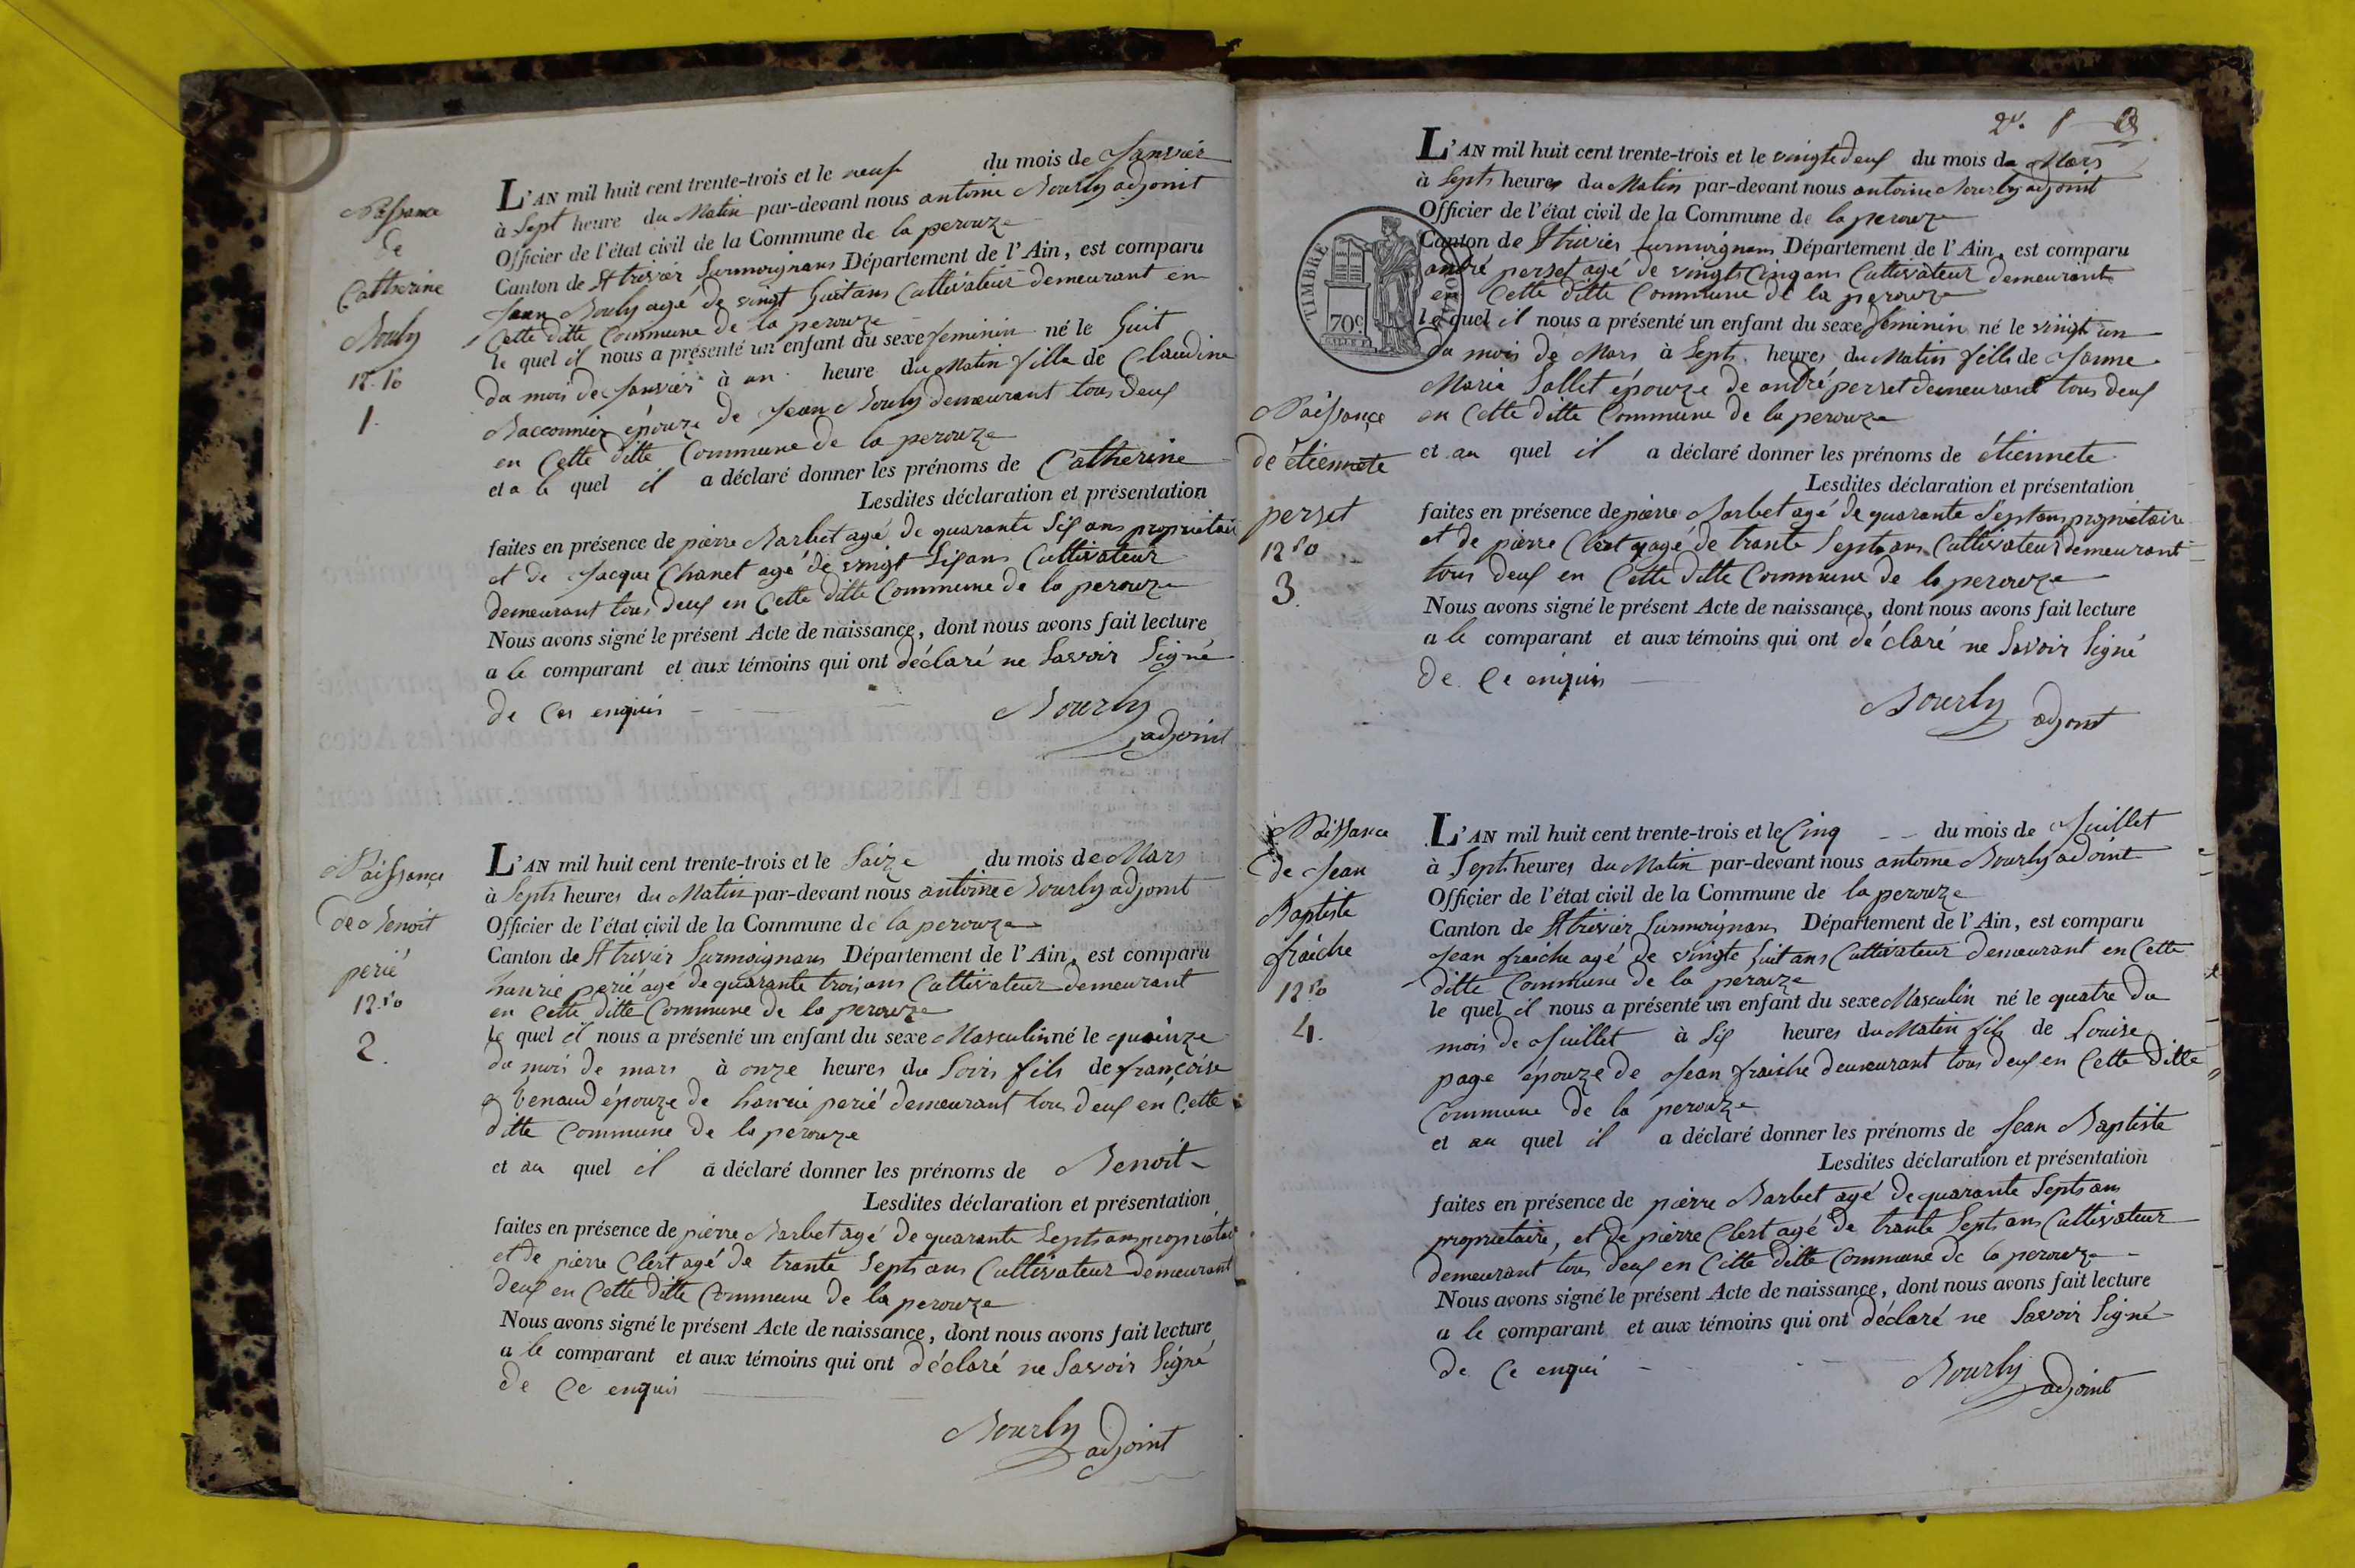 Naissance
de
Catherine
Bouly
12. 10
1.
L'AN mil huit cent trente-trois et le neuf du mois de Janvier
à Sept heure du Matin par-devant nous antoine Bourly adjoint
Officier de l'état civil de la Commune de la perouze
Canton de St trivier Surmoignans Département de l'Ain, est comparu
Jean Bouly agé de vingt huit ans Cultivateur demeurant en
Cette ditte Commune de la perouze
le quel il nous a présenté un enfant du sexe feminin né le huit
du mois de Janvier à un heure du Matin fille de Claudine
épouze de Jean Bouly demeurant tous deux
en Cette ditte Commune de la perouze
et a le quel il a déclaré donner les prénoms de Catherine
Lesdites déclaration et présentation
faites en présence de pierre Barbet agé de quarante Six ans proprietaire
et de Jacque Chanet agé de vingt Six ans Cultivateur
demeurant tous deux en Cette ditte Commune de la perouze
Nous avons signé le présent Acte de naissance, dont nous avons fait lecture
a le comparant et aux témoins qui ont déclaré ne Savoir Signé
de Ces enquis
Bourly
adjoint
Naissance
de Benoit
perié
2.
L'AN mil huit cent trente-trois et le Saize du mois de Mars
à Septs heures du Matin par-devant nous antoine Bourly adjoint
Officier de l'état civil de la Commune de la perouze
Canton de St trivier Surmoignans Département de l'Ain, est comparu
hanrie perié agé de quarante trois ans Cultivateur demeurant
en Cette ditte Commune de la perouze
le quel il nous a présenté un enfant du sexe Masculin né le quainze
du mois de mars à onze heures du Soirs fils de françoise
Benaud épouze de hanrie perié demeurant tous deux en Cette
ditte Commune de la perouze
et au quel il a déclaré donner les prénoms de Benoit
Lesdites déclaration et présentation
faites en présence de pierre Barbet agé de quarante Septs ans proprietai
et de pierre Clert agé de trante Septs ans Cultivateur demeurant
deux en Cette ditte Commune de la perouze
Nous avons signé le présent Acte de naissance, dont nous avons fait lecture
a le comparant et aux témoins qui ont déclaré ne Savoir Signé
de Ce enquis
Bourly
adjoint
TIMBRE
70c.
Naissance
de étiennete
perset
3.
L'AN mil huit cent trente-trois et le vingt deux du mois de Mars
à Septs heures du Matin par-devant nous antoine Bourly adjoint
Officier de l'état civil de la Commune de la perouze
Canton de St trivier Surmoignans Département de l'Ain, est comparu
andré perset agé de vingt Cinq ans Cultivateur demeurant
en Cette ditte Commune de la perouze
le quel il nous a présenté un enfant du sexe feminin né le vingt un
du mois de Mars à Septs heures du Matin fille de Janne
Marie Sallet épouze de andré perset demeurant tous deux
en Cette ditte Commune de la perouze
et au quel il a déclaré donner les prénoms de étiennete
Lesdites déclaration et présentation
faites en présence de pierre Barbet agé de quarante Septs ans propriétaire
et de pierre Clert agé de trante Septs ans Cultivateur demeurant
tous deux en Cette ditte Commune de la perouze
Nous avons signé le présent Acte de naissance, dont nous avons fait lecture
a le comparant et aux témoins qui ont déclaré ne Savoir Signé
de Ce enquis
Bourly
adjoint
Naissance
de Jean
Baptiste
fraiche
4.
L'AN mil huit cent trente-trois et le Cinq du mois de Juillet
à Septs heures du Matin par-devant nous antoine Bourly adjoint
Officier de l'état civil de la Commune de la perouze
Canton de St trivier Surmoignans Département de l'Ain, est comparu
Jean fraiche agé de vingte huit ans Cultivateur demeurant en Cette
ditte Commune de la perouze
le quel il nous a présenté un enfant du sexe Masculin né le quatre du
mois de Juillet à Six heures du Matin fils de Louise
page épouze de Jean fraiche demeurant tous deux en Cette ditte
Commune de la perouze
et au quel il a déclaré donner les prénoms de Jean Baptiste
Lesdites déclaration et présentation
faites en présence de pierre Barbet agé de quarante Septs ans
proprietaire, et de pierre Clert agé de trante Septs ans Cultivateur
demeurant tous deux en Cette ditte Commune de la perouze
Nous avons signé le présent Acte de naissance, dont nous avons fait lecture
a le comparant et aux témoins qui ont déclaré ne Savoir Signé
de Ce enqui
Bourly
adjoint